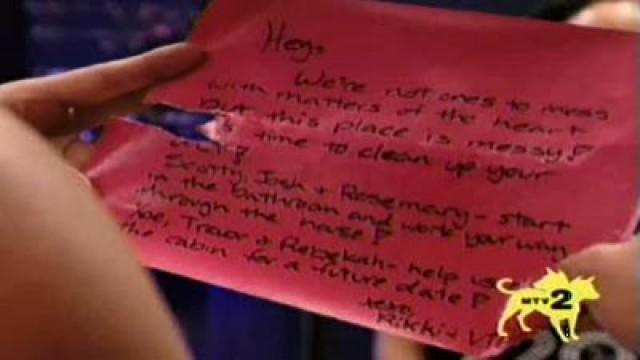 Hey,
We're not ones to mess
with matters of the heart
but this place is messy!
time to clean up your
Scotty, Josh + Rosemary - start
in the bathroom and work your way
through the house!
Joe, Travor + Rebekah - help us
the cabin for a future date!
xoxo,
Rikki + V
MTV 2